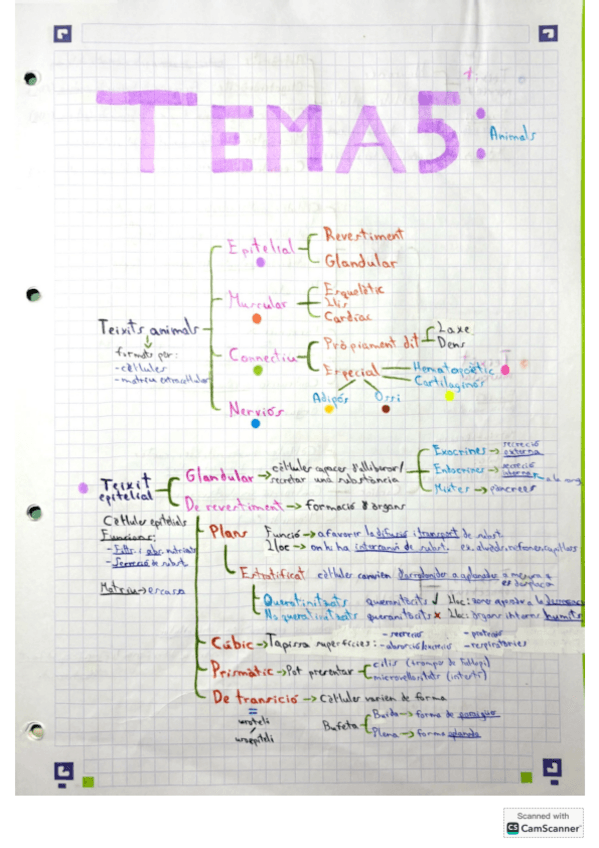 TEMA5:
Animals
Teixits animals
formats per:
- cèl·lules
- matriu extracel·lular
Epitelial
Revestiment
Glandular
Muscular
Esquelètic
Llis
Cardíac
Connectiu
Pròpiament dit
Laxe
Dens
Especial
Hematopoètic
Cartilaginós
Adipós
Ossi
Nerviós
Teixit
epitelial
Cèl·lules epitelials
Funcions:
- Filtr. i abs. nutrients
- Secreció de subst.
Matriu → escasa
Glandular → cèl·lules capaces d'alliberar/
secretar una substància
Exocrines → secreció
externa
Endocrines → secreció
interna
Mixtes → páncrees
De revestiment → formació d'òrgans
Plans
Funció → afavorir la difusió i transport de subst.
Lloc → on hi ha intercanvi de subst. ex.
Estratificat cèl·lules canvien d'arrodonides a aplanades a mesura q
es desplacen
Queratinitzats queratinòcits ✓ Lloc: zones
No queratinitzats queratinòcits ✗ Lloc: òrgans interns humits
Cúbic → Tapissa superfícies:
- secreció
- absorció/
- protecció
- respiratòries
Prismàtic → Pot presentar
- cilis (trompa de falopi)
- microvellositats (intestí)
De transició → Cèl·lules varien de forma
=
uroteli
uroepiteli
Bufeta
Buida → forma de
Plena → forma aplanada
Scanned with
CS CamScanner